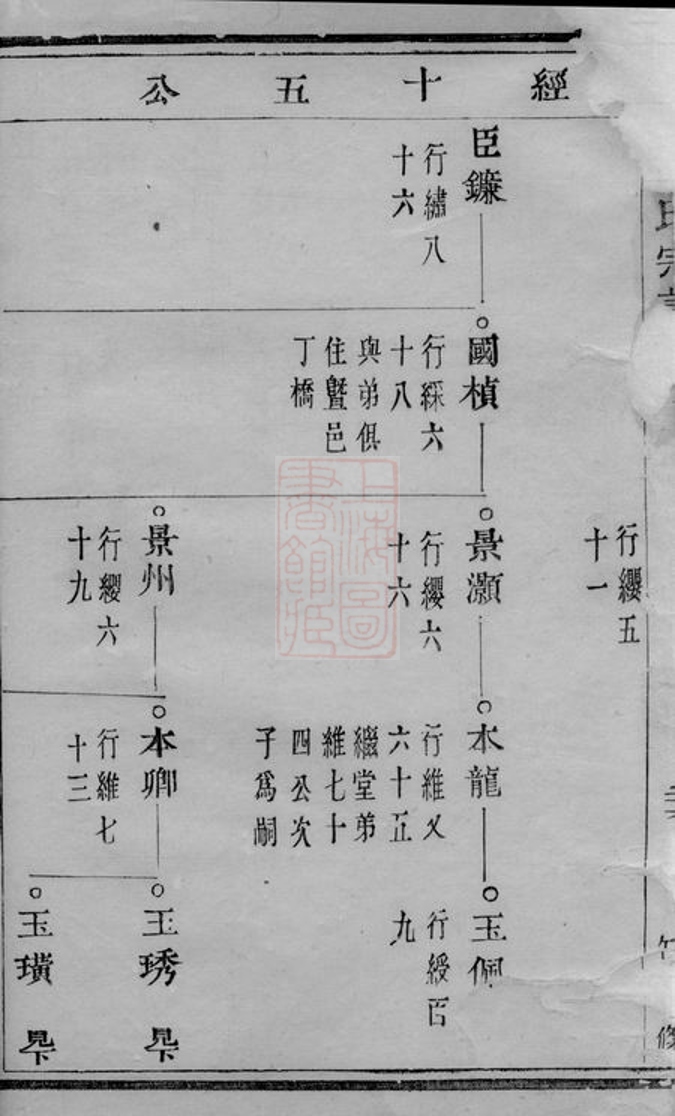 經十五公
行纓五
十一
臣鐮
行繡八
十六
國楨
行綵六
十八
與弟俱
住暨邑
丁橋
景灝
行纓六
十六
本龍
行維又
六十五
繼堂弟
維七十
四公次
子爲嗣
玉佩
行綬百
九
景州
行纓六
十九
本卿
行維七
十三
玉琇
見下
玉璜
見下
上海圖
書館藏
修